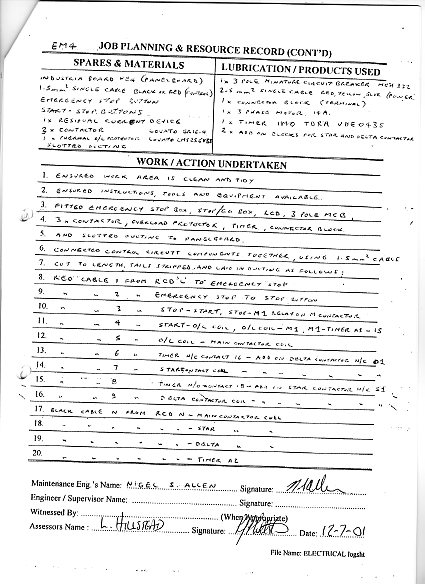 EM4 JOB PLANNING & RESOURCE RECORD (CONT'D)
SPARES & MATERIALS
INDUSTRIA BOARD (PANELBOARD)
1.5mm² SINGLE CABLE BLACK OR RED (CONTROL)
EMERGENCY STOP BUTTON
START-STOP BUTTONS
1 x RESIDUAL CURRENT DEVICE
3 x CONTACTOR LOVATO
1 x THERMAL O/L PROTECTOR LOVATO
SLOTTED DUCTING
LUBRICATION / PRODUCTS USED
1 x 3 POLE MINATURE CIRCUIT BREAKER MEM
2.5mm² SINGLE CABLE RED, YELLOW, BLUE (POWER)
1 x CONNECTOR BLOCK (TERMINAL)
1 x 3 PHASE MOTOR
1 x TIMER IMO TDRA UDE0435
2 x ADD ON BLOCKS FOR STAR AND DELTA CONTACTOR
WORK / ACTION UNDERTAKEN
1. ENSURED WORK AREA IS CLEAN AND TIDY
2. ENSURED INSTRUCTIONS, TOOLS AND EQUIPMENT AVAILABLE.
3. FITTED EMERGENCY STOP BOX, STOP/GO BOX, RCD, 3 POLE MCB,
4. 3 x CONTACTOR, OVERLOAD PROTECTOR, TIMER, CONNECTOR BLOCK
5. AND SLOTTED DUCTING TO PANELBOARD.
6. CONNECTED CONTROL CIRCUIT COMPONENTS TOGETHER, USING 1.5mm² CABLE
7. CUT TO LENGTH, TAILS STRIPPED, AND LAID IN DUCTING AS FOLLOWS;
8. RED CABLE 1 FROM RCD 'L' TO EMERGENCY STOP
9. " " 2 " EMERGENCY STOP TO STOP BUTTON
10. " " 3 " STOP-START, STOP-M1 RELAY ON M CONTACTOR
11. " " 4 " START-O/L COIL, O/L COIL-M1, M1-TIMER A1-15
12 " " 5 " O/L COIL - MAIN CONTACTOR COIL
13. " " 6 " TIMER N/C CONTACT 16 - ADD ON DELTA CONTACTOR N/C D1
14. " " 7 " STAR CONTACT COIL " " " "
15. " " 8 " TIMER N/O CONTACT 18 - ADD ON STAR CONTACTOR N/C S1
16. " " 9 " DELTA CONTACTOR COIL - " " " "
17. BLACK CABLE N FROM RCD N - MAIN CONTACTOR COIL
18. " " " " " - STAR " "
19. " " " " " - DELTA " "
20. " " " " " - TIMER A2
Maintenance Eng 's Name: NIGEL S. ALLEN Signature: N Allen
Engineer / Supervisor Name: Signature:
Witnessed By: (When Appropriate)
Assessors Name : L. HILLSTEAD Signature: Date: 12-7-01
File Name: ELECTRICAL logsht